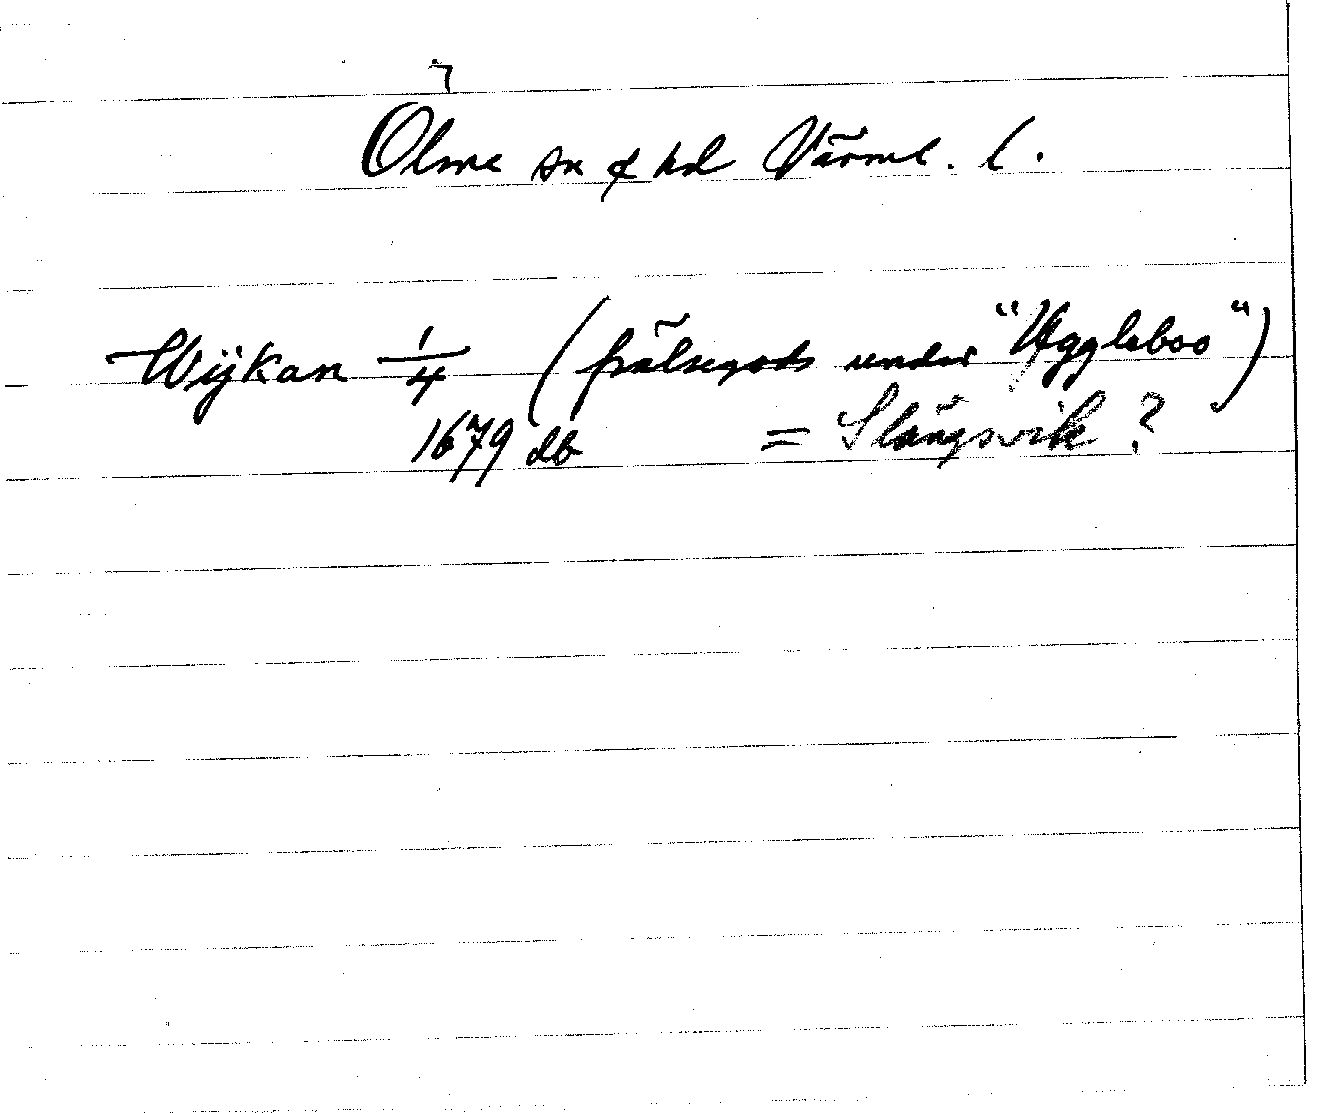 Ölme sn & hd Värml. l.
Wijkan 1/4 (frälsegods under "Uggleboo")
1679 db = Slängsvik?